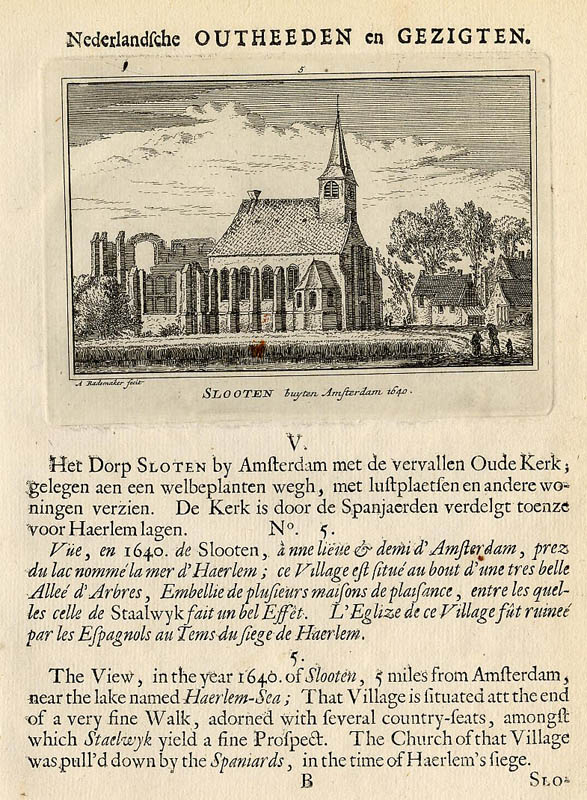 Nederlandſche OUTHEEDEN en GEZIGTEN.
5
A Rademaker fecit
SLOOTEN buyten Amſterdam 1640.
V.
Het Dorp SLOTEN by Amſterdam met de vervallen Oude Kerk;
gelegen aen een welbeplanten wegh, met luſtplaetſen en andere wo-
ningen verzien. De Kerk is door de Spanjaerden verdelgt toenze
voor Haerlem lagen. N°. 5.
Vüe, en 1640. de Slooten, à nne lieüe & demi d'Amſterdam, prez
du lac nommé la mer d'Haerlem; ce Village eſt ſitué au bout d'une tres belle
Alleé d'Arbres, Embellie de pluſieurs maiſons de plaiſance, entre les quel-
les celle de Staalwyk fait un bel Effèt. L'Eglize de ce Village fût ruineé
par les Eſpagnols au Tems du ſiege de Haerlem.
5.
The View, in the year 1640. of Slooten, 5 miles from Amſterdam,
near the lake named Haerlem-Sea; That Village is ſituated att the end
of a very fine Walk, adorned with ſeveral country-ſeats, amongſt
which Staelwyk yield a fine Proſpect. The Church of that Village
was pull'd down by the Spaniards, in the time of Haerlem's ſiege.
B SLO-